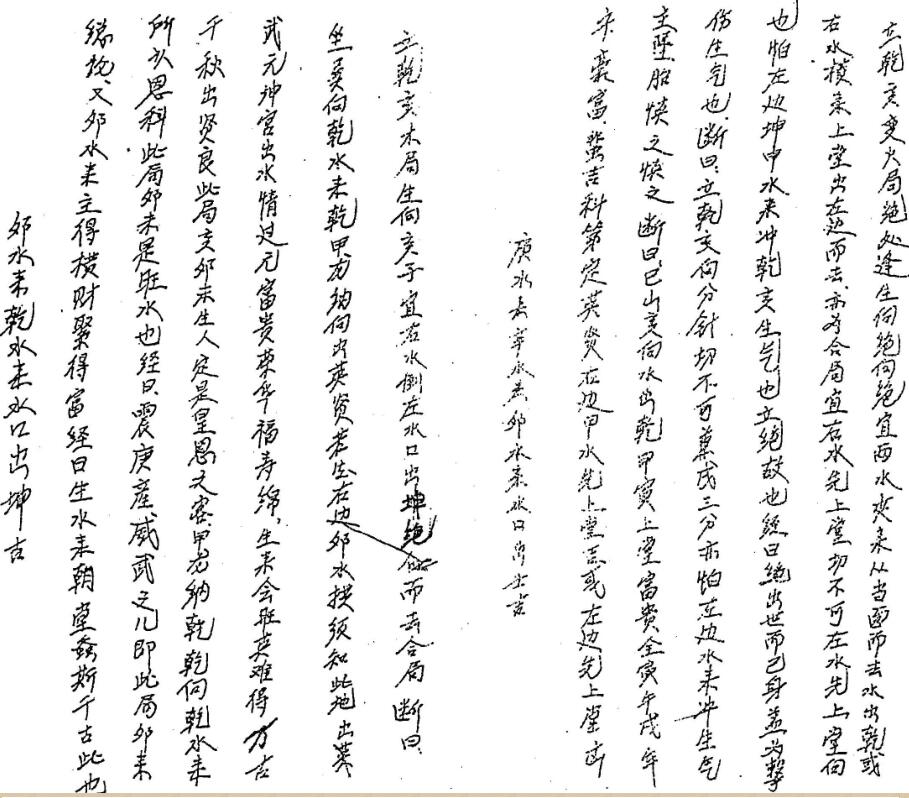 立乾亥变火局绝处逢生向绝向宜两水夾来从当面而去水出乾或
右水横来上堂出左边而去亦为合局宜右水先上堂切不可左水先上堂向
也怕左边坤申水来冲乾亥生气也立绝故也经曰绝出世而己身益为
伤生气也断曰立乾亥向分针切不可兼戌三分亦怕左边水来冲生气
主坠胎慎之慎之断曰巳山亥向水出乾甲寅上堂富贵全寅午戌年
来富吉科第定英贤右边甲水先上堂左边先上堂
庚水去辛水去卯水来水口出吉
立乾亥木局生向亥子宜右水倒左水口出坤绝位而去合局断曰
坐巽向乾水来乾甲龙纳向出英贤若出右边卯水拱须知此地出英
武元坤宫出水情过元富贵荣华福寿绵生来会旺真难得万古
千秋出贤良此局亥卯未生人定是皇恩之客甲龙纳乾乾向乾水来
所以恩科此局卯未是旺水也经曰震庚产威武之儿即此局卯来
又卯水来主得横财聚得富经曰生水来朝堂螽斯千古此也
卯水来乾水来水口出坤吉